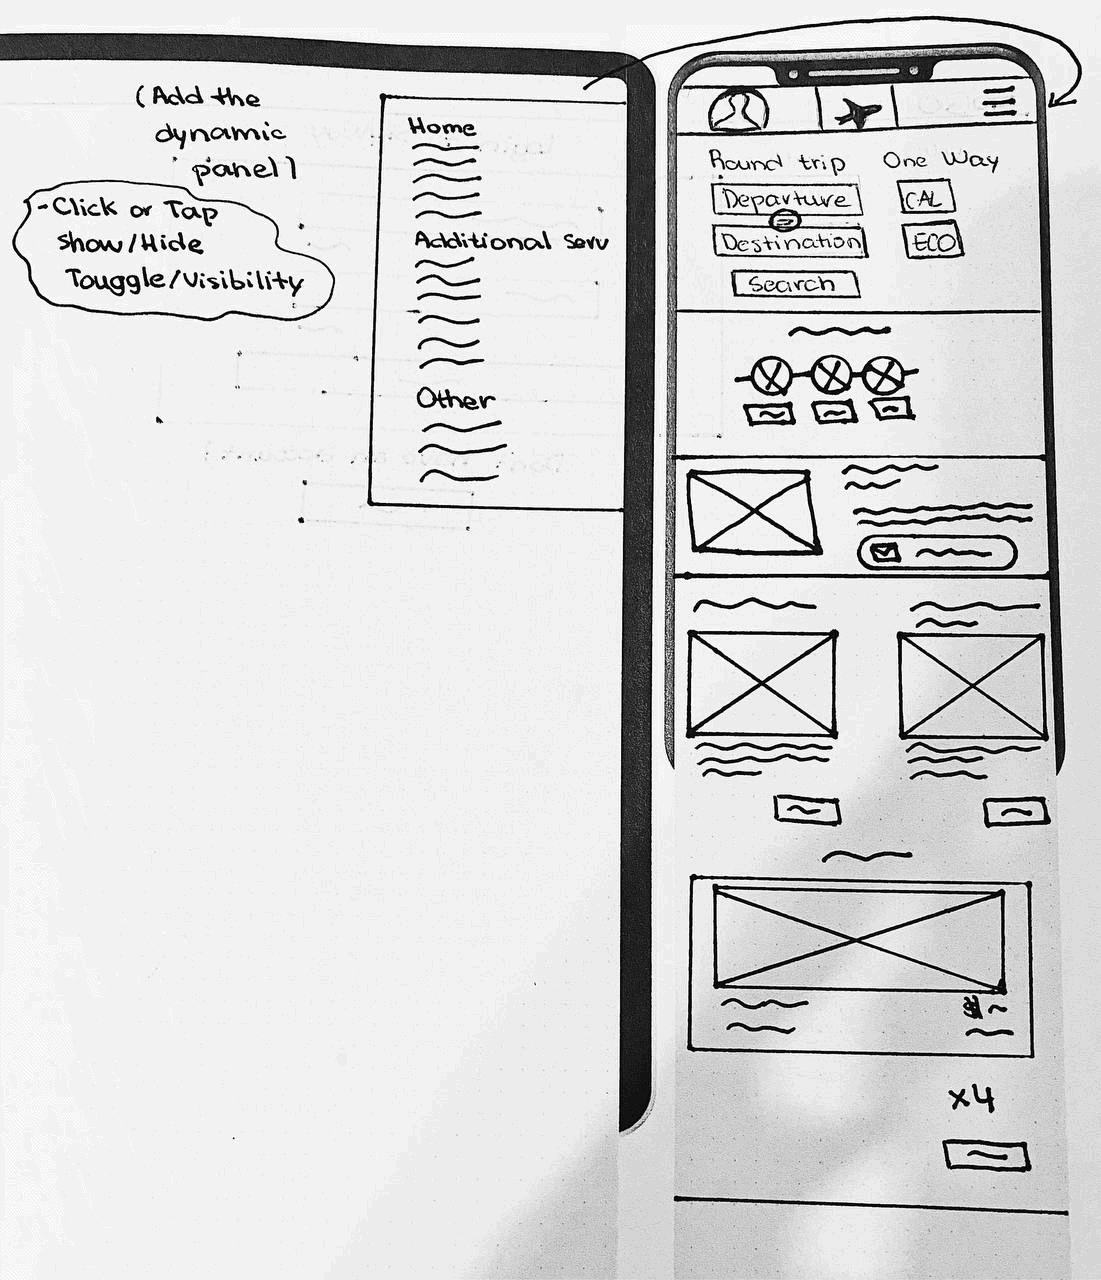 (Add the
dynamic
panel)
-Click or Tap
Show/Hide
Touggle/Visibility
Home
Additional Serv
Other
Round trip
One Way
Departure
CAL
Destination
ECO
Search
x4